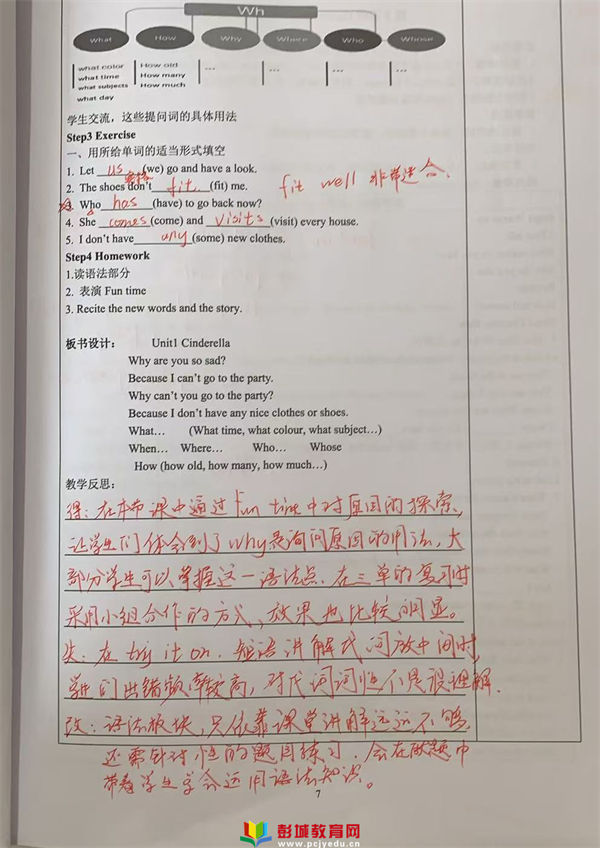 Wh
What How Why Where Who Whose
what color How old ... ... ... ...
what time How many
what subjects How much
what day
学生交流，这些提问词的具体用法
Step3 Exercise
一、用所给单词的适当形式填空
1. Let us (we) go and have a look.
2. The shoes don't fit (fit) me. fit well 非常适合.
3. Who has (have) to go back now?
4. She comes (come) and visits (visit) every house.
5. I don't have any (some) new clothes.
Step4 Homework
1.读语法部分
2. 表演 Fun time
3. Recite the new words and the story.
板书设计： Unit1 Cinderella
Why are you so sad?
Because I can't go to the party.
Why can't you go to the party?
Because I don't have any nice clothes or shoes.
What… (What time, what colour, what subject…)
When… Where… Who… Whose
How (how old, how many, how much…)
教学反思：
得：在本节课中通过 Fun time 中对原因的探索、
让学生们体会到了why是询问原因的用法，大
部分学生可以掌握这一语法点．在三单的复习时
采用小组合作的方式，效果也比较明显。
失：在 try it on．短语讲解代词放中间时
学生们出错频率较高，对代词词性不是很理解．
改：语法板块，只依靠课堂讲解远远不够
还需针对性的题目练习．会在做题中
带着学生学会运用语法知识。
7
彭城教育网
www.pcjyedu.cn